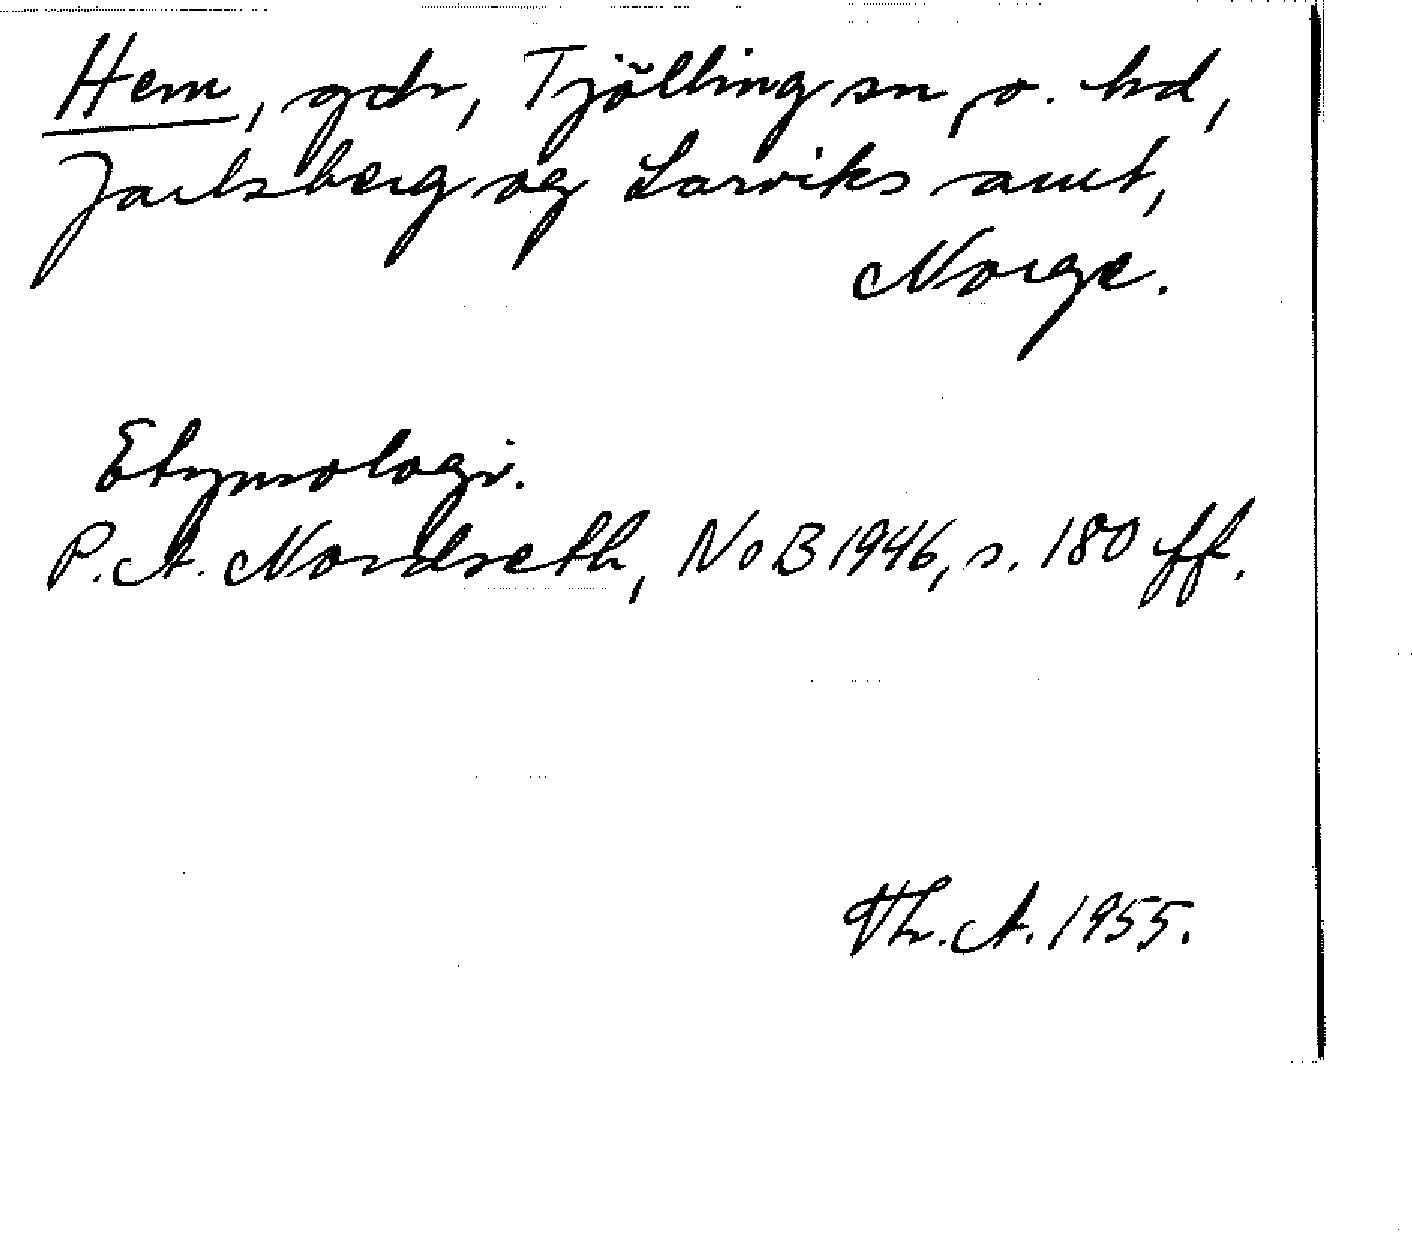 Hem, gdr, Tjölling sn o. hd,
Jarlsberg og Larviks amt,
Norge.
Etymologi.
P. A. Nordseth, NoB 1946, s. 180 ff.
Th. A. 1955.